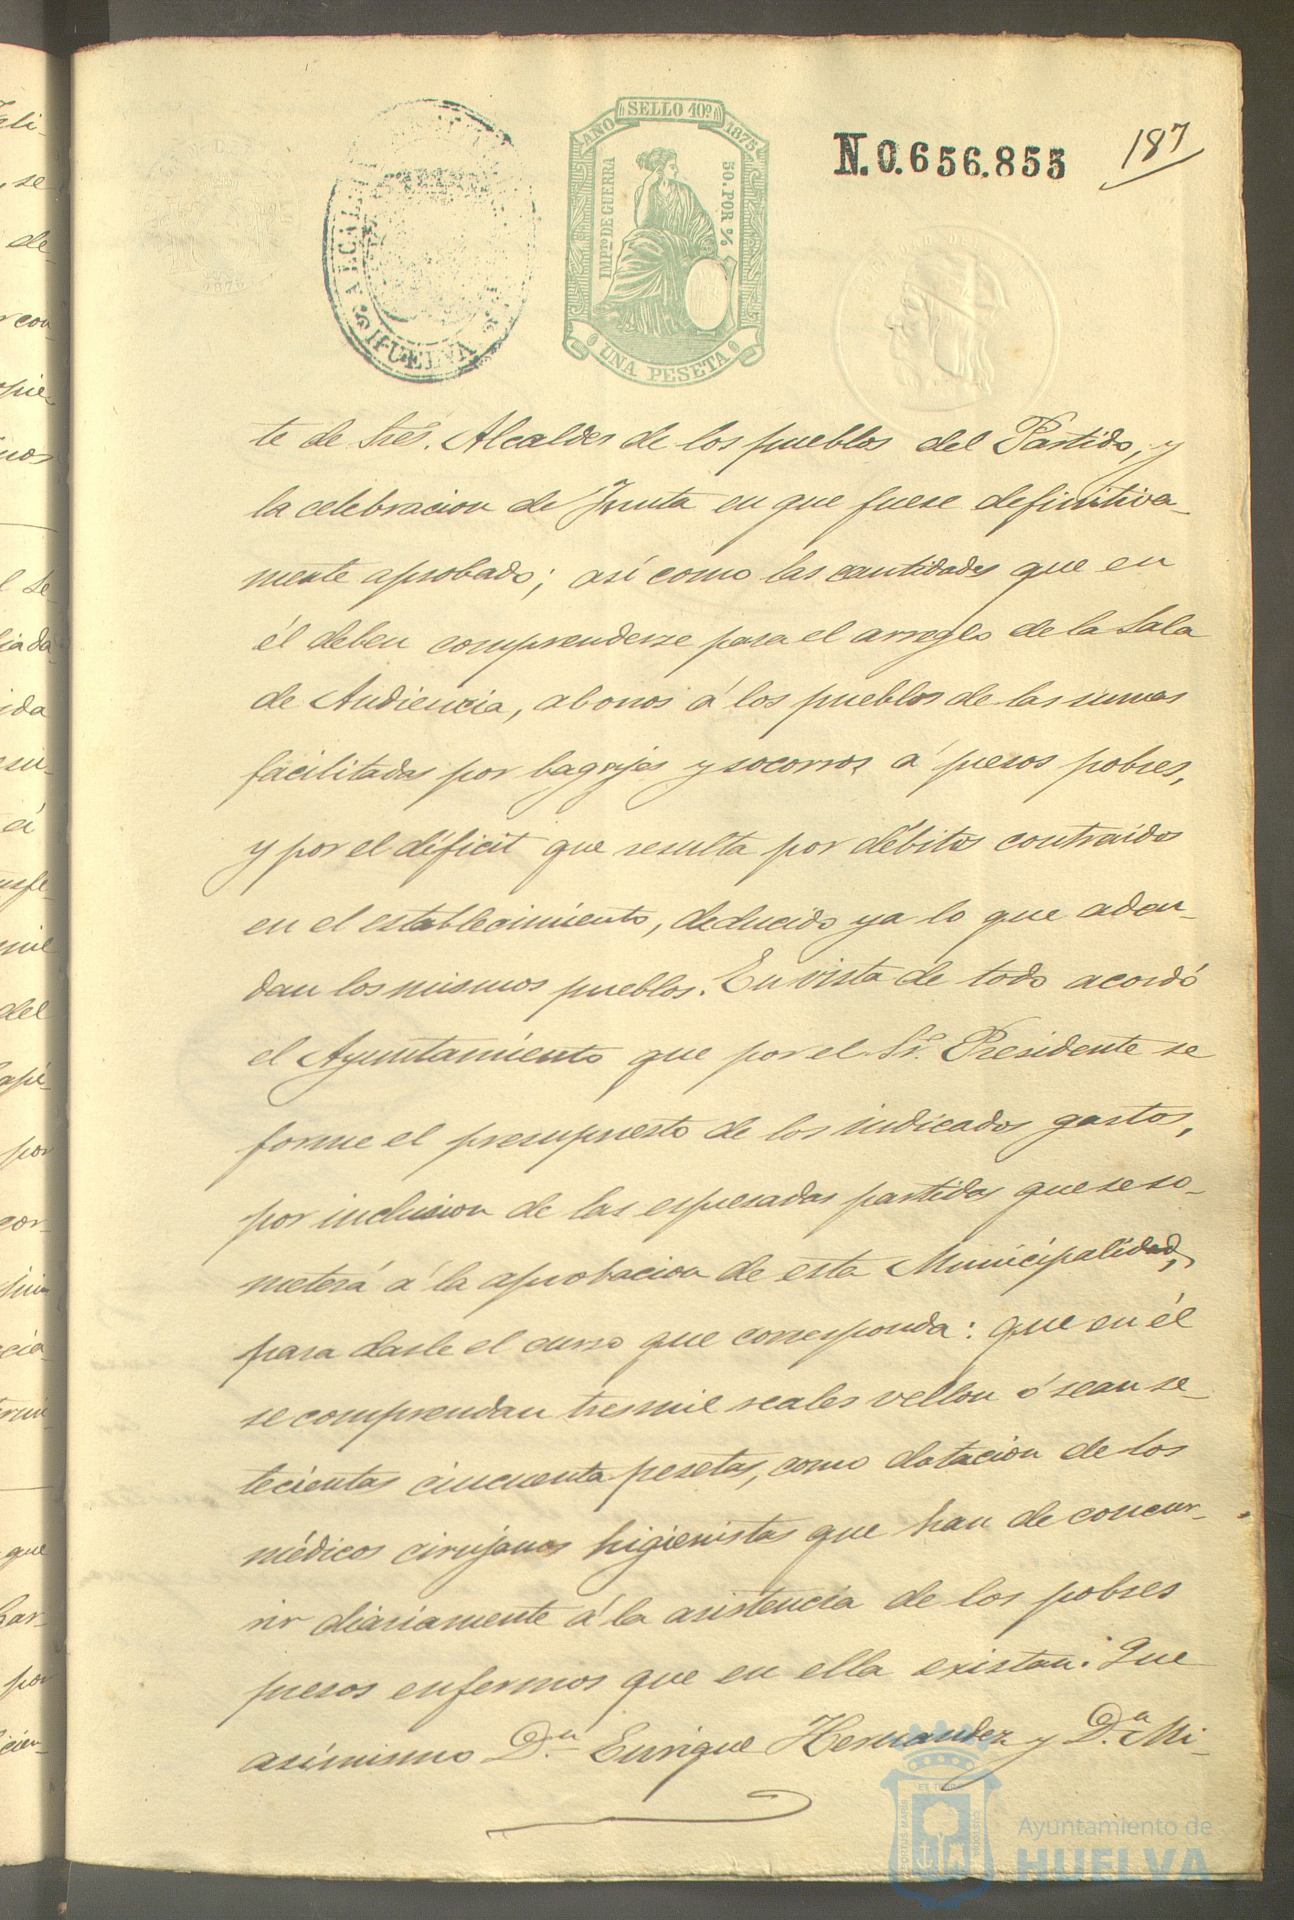 AÑO SELLO 10º 1875
IMPTO DE GUERRA
50 POR %
UNA PESETA
ALCAL
HUELVA
N. 0.656.855
187
te de Sres. Alcaldes de los pueblos del Partido, y
la celebracion de Junta en que fuese definitiva-
mente aprobado; así como las cantidades que en
él deben comprenderse para el arreglo de la Sala
de Audiencia, abonos á los pueblos de las sumas
facilitadas por bagajes y socorros á presos pobres,
y por el déficit que resulta por débitos contraidos
en el establecimiento, deducido ya lo que adeu-
dan los mismos pueblos. En vista de todo acordó
el Ayuntamiento que por el Sr. Presidente se
forme el presupuesto de los indicados gastos,
por inclusion de las espresadas partidas que se so-
meterá á la aprobacion de esta Municipalidad,
para darle el curso que corresponda: que en él
se comprendan tres mil reales vellon ó sean se-
tecientas cincuenta pesetas, como dotacion de los
médicos cirujanos higienistas que han de concur-
rir diariamente á la asistencia de los pobres
presos enfermos que en ella existan. Que
asímismo Dn. Enrique Hernandez y D.n Mi-
Ayuntamiento de
HUELVA